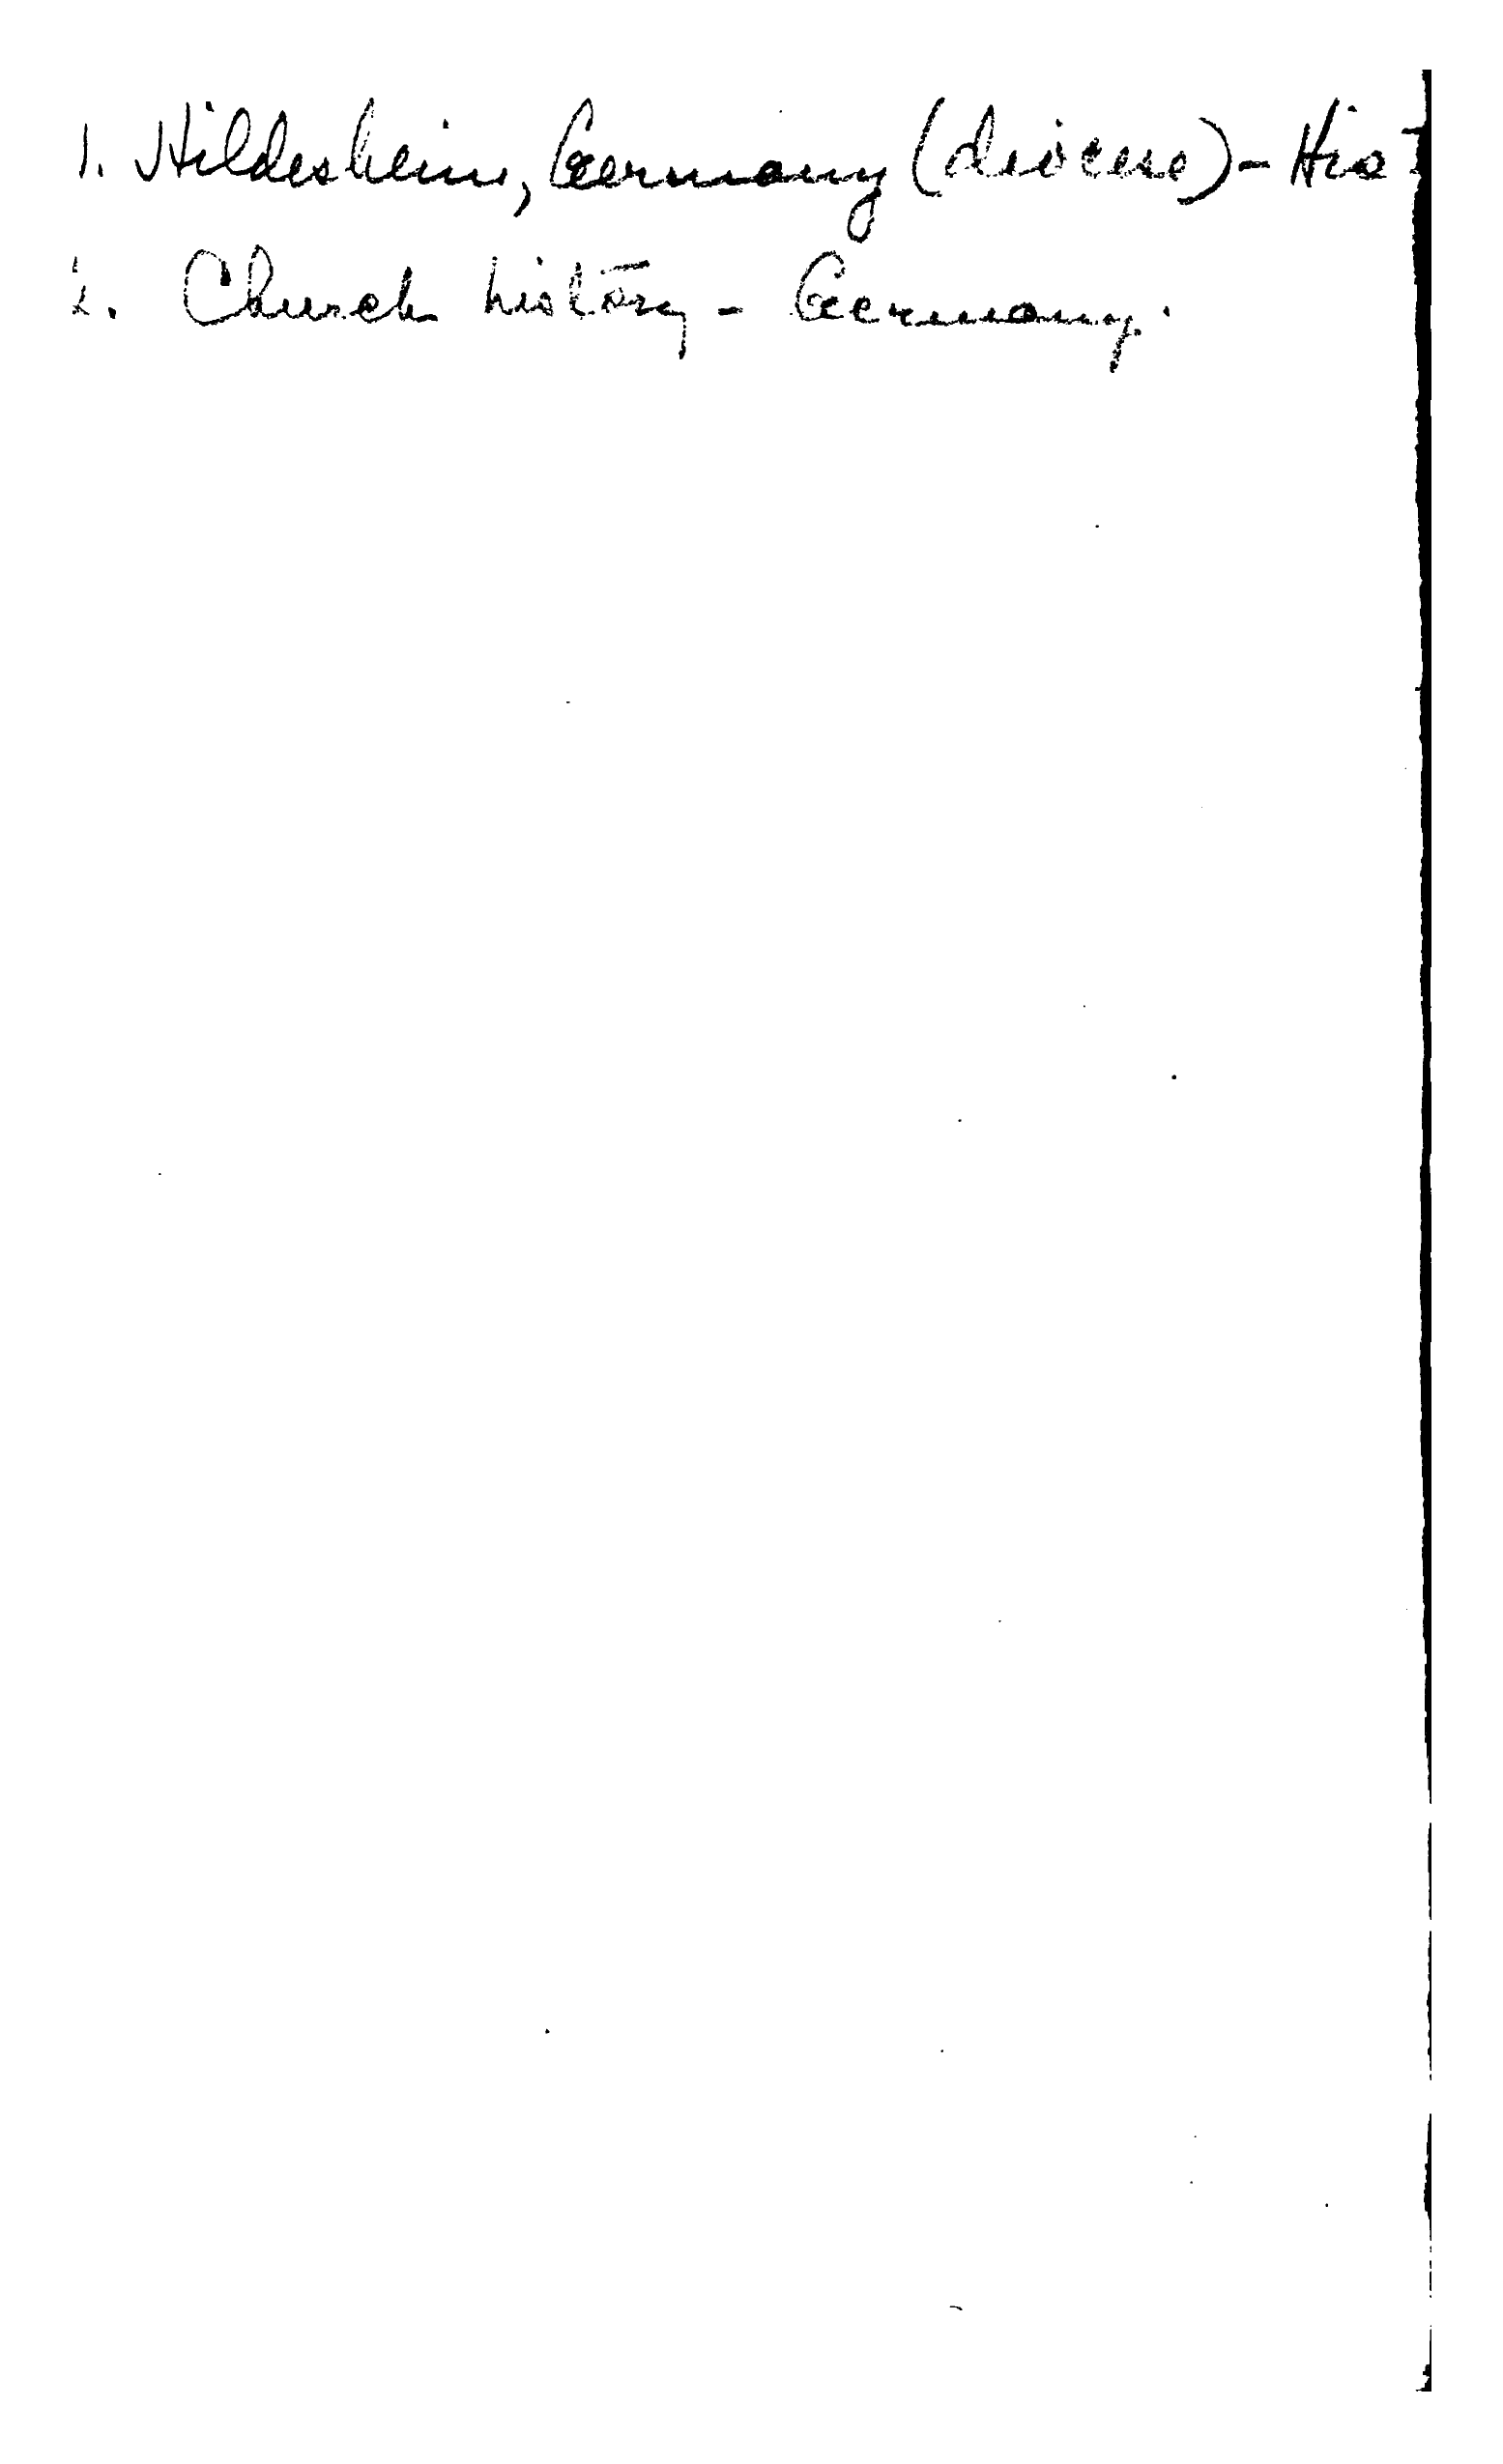 1. Hildesheim, Germany (diocese) - Hist
2. Church history - Germany.